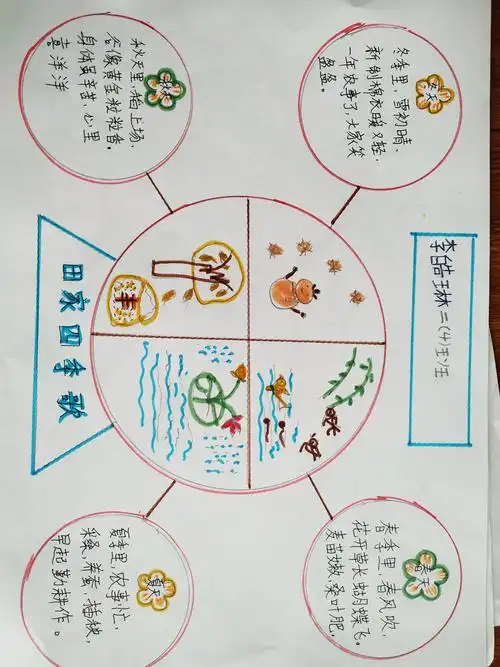 李皓琳二(4)班
冬天
冬季里,雪初晴,
新制棉衣暖又轻.
一年农事了,大家笑
盈盈。
春天
春季里,春风吹,
花开草长蝴蝶飞。
麦苗嫩,桑叶肥,
秋天
秋天里,稻上场,
谷像黄金粒粒香。
身体虽辛苦,心里
喜洋洋
丰
夏天
夏季里,农事忙,
采桑,养蚕,插秧,
早起勤耕作。
田家四季歌